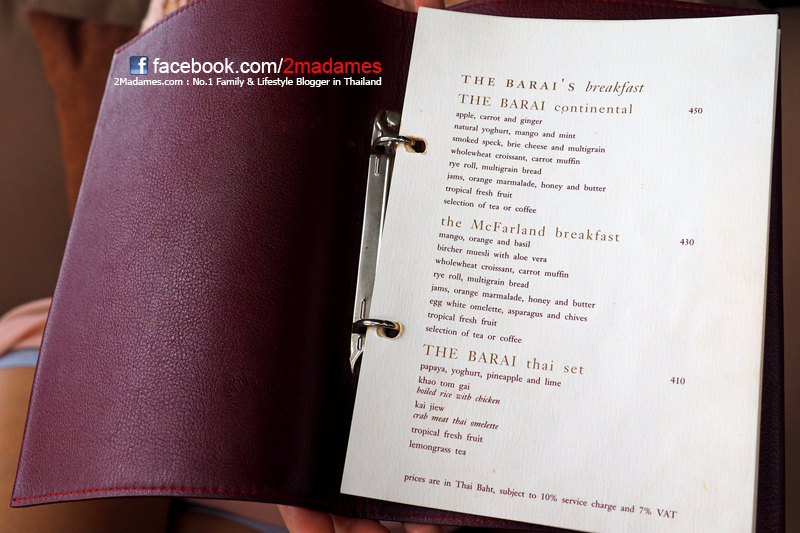 facebook.com/2madames
2Madames.com : No.1 Family & Lifestyle Blogger in Thailand
THE BARAI'S breakfast
THE BARAI continental 450
apple, carrot and ginger
natural yoghurt, mango and mint
smoked speck, brie cheese and multigrain
wholewheat croissant, carrot muffin
rye roll, multigrain bread
jams, orange marmalade, honey and butter
tropical fresh fruit
selection of tea or coffee
the McFarland breakfast 430
mango, orange and basil
bircher muesli with aloe vera
wholewheat croissant, carrot muffin
rye roll, multigrain bread
jams, orange marmalade, honey and butter
egg white omelette, asparagus and chives
tropical fresh fruit
selection of tea or coffee
THE BARAI thai set 410
papaya, yoghurt, pineapple and lime
khao tom gai
boiled rice with chicken
kai jiew
crab meat thai omelette
tropical fresh fruit
lemongrass tea
prices are in Thai Baht, subject to 10% service charge and 7% VAT